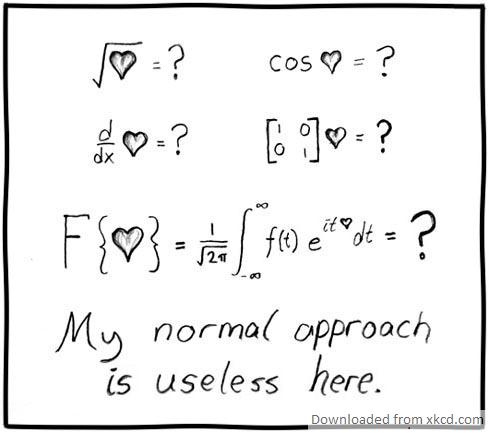 √♥ = ? cos ♥ = ?
d/dx ♥ = ? [1 0; 0 1] ♥ = ?
F{♥} = 1/√2π ∫_-∞^∞ f(t) e^it♥ dt = ?
My normal approach
is useless here.
Downloaded from xkcd.com